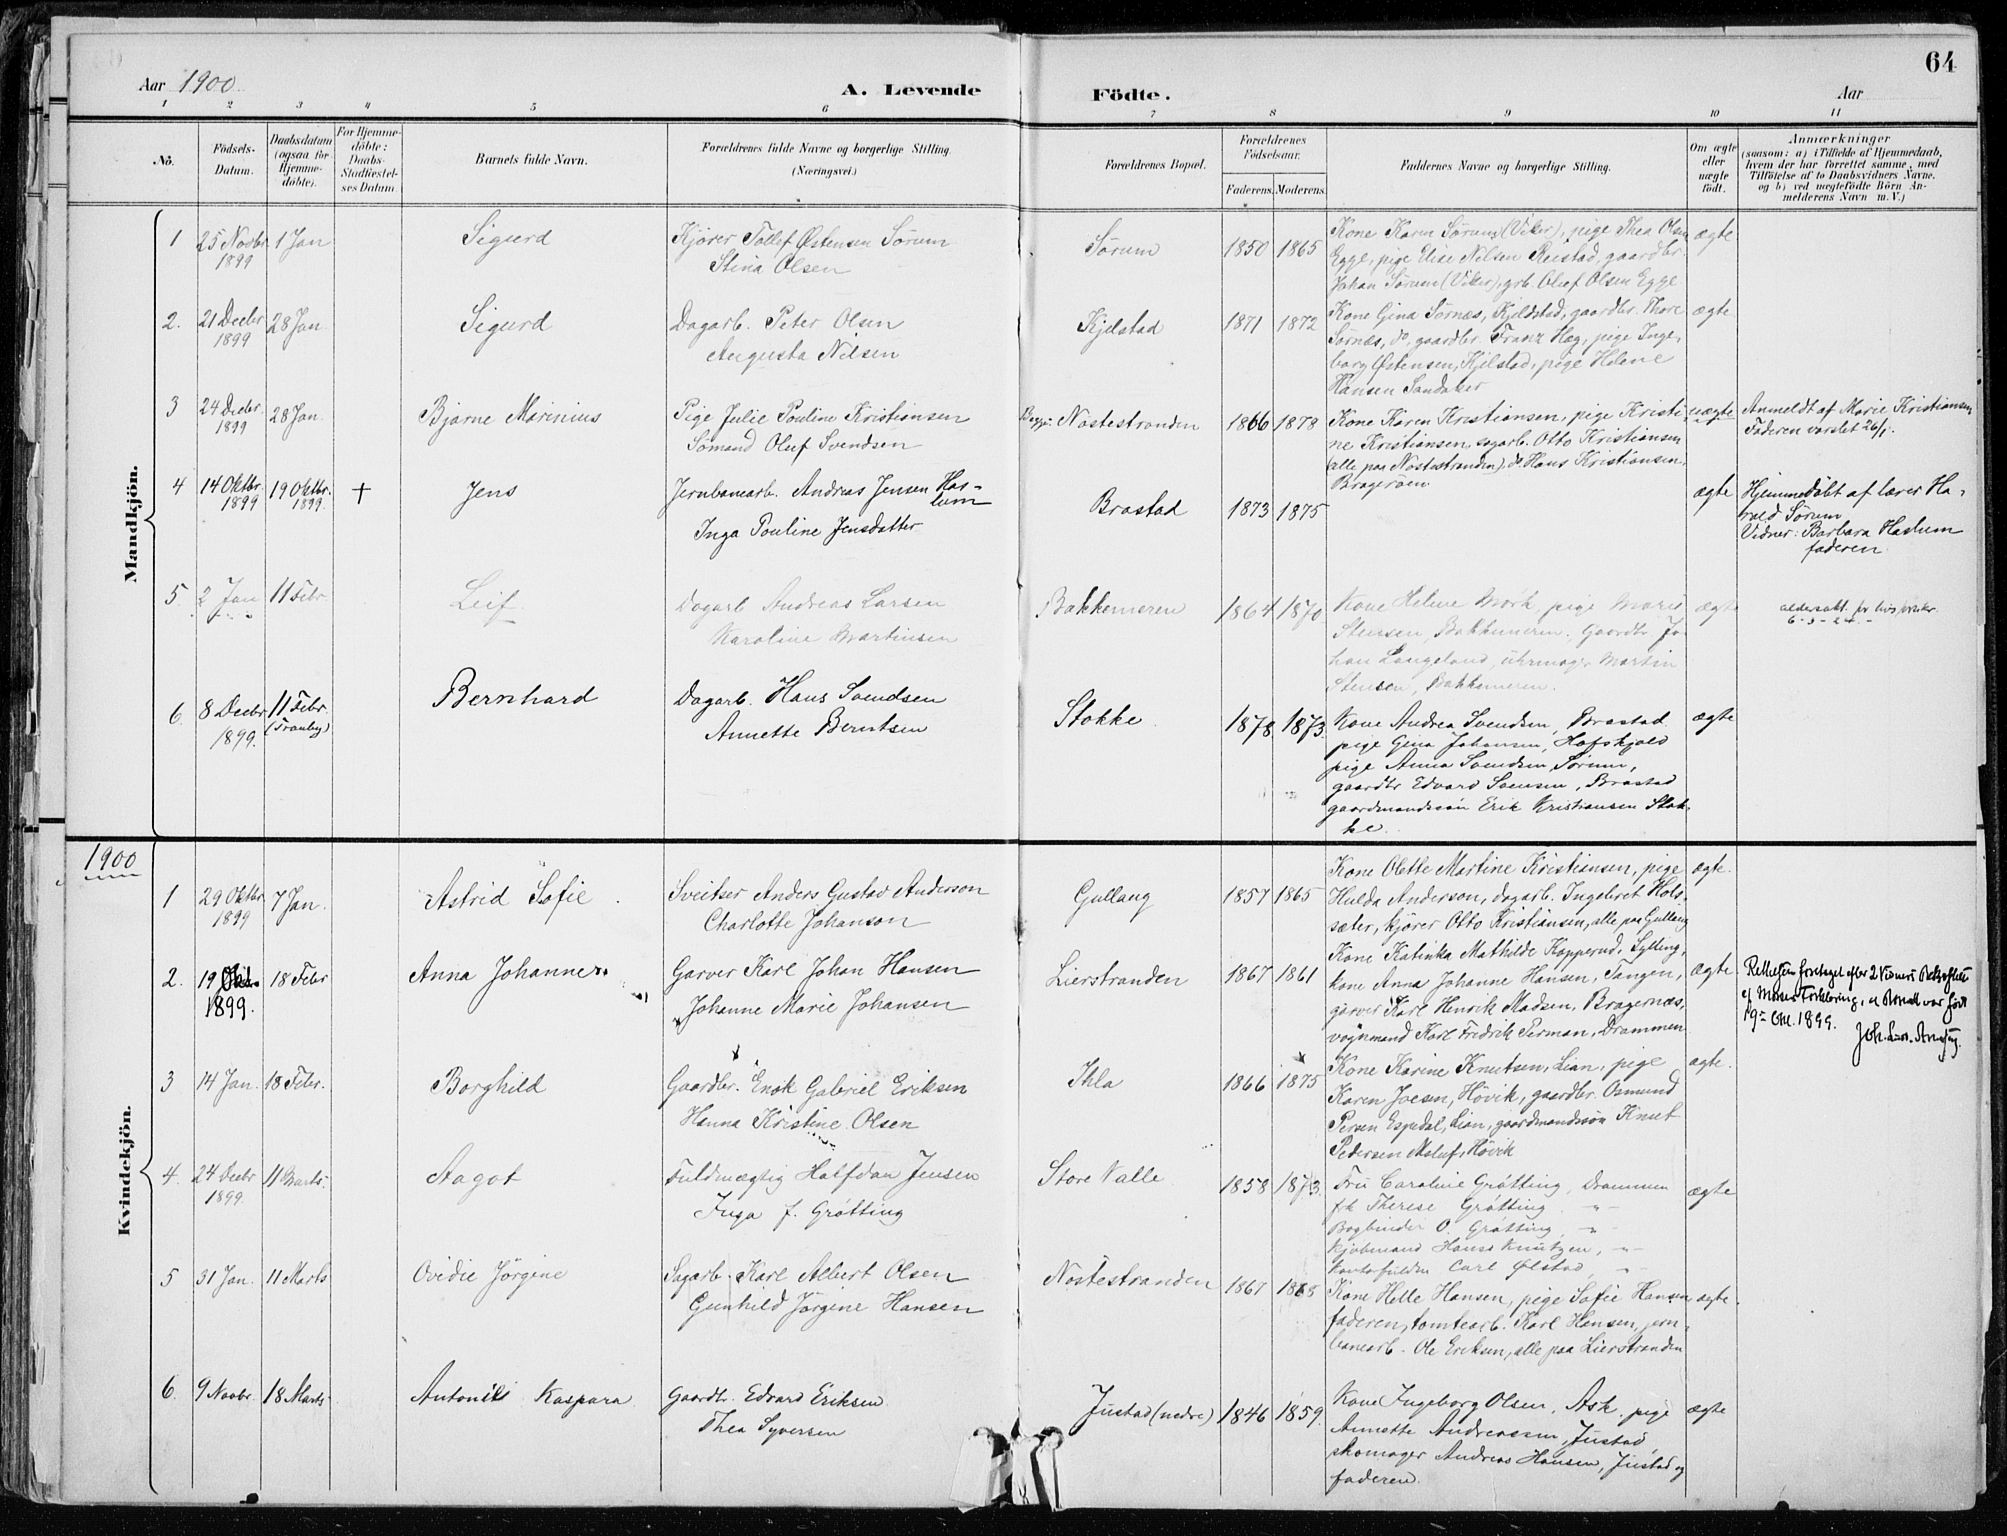 64
Aar 1900
A. Levende Födte.
Aar
1 2 3 4 5 6 7 8 9 10 11
No.
Födsels-Datum.
Daabsdatum (ogsaa for Hjemme-döbte).
For Hjemme-döbte: Daabs-Stadfæstel-ses Datum.
Barnets fulde Navn.
Forældrenes fulde Navne og borgerlige Stilling (Næringsvei.)
Forældrenes Bopæl.
Forældrenes Födselsaar.
Faderens. Moderens.
Faddernes Navne og borgerlige Stilling.
Om ægte eller uægte födt.
Anmærkninger
(saasom: a) i Tilfælde af Hjemmedaab, hvem der har forrettet samme, med Tilföielse af to Daabsvidners Navne, og b) ved uægtefödte Börn An-melderens Navn m. V.)
Mandkjön.
1 25 Novbr 1899 1 Jan Sigurd
Kjører Tollef Østensen Sørum
Stina Olsen
Sørum 1850 1865
Kone Karen Sørum (Viker), pige Thea Olsen
Egge, pige Elise Nilsen Reistad, gaardbr.
Johan Sørum (Viker), grb. Oluf Olsen Egge
ægte
2. 21 Decbr 1899 28 Jan. Sigurd
Dagarb. Peter Olsen
Augusta Nilsen
Kjelstad 1871 1872
Kone Gina Sørnæs, Kjeldstad, gaardbr. Thore
Sørnæs, do, gaardbr. Franz Hæg, pige Inge-
borg Østensen, Kjelstad, pige Helene
Hansen Sandaker
ægte
3 24 Decbr. 1899 28 Jan. Bjarne Marinius
Pige Julie Pouline Kristiansen
Sømand Oluf Svendsen
Nøstestranden 1866 1878
Kone Karen Kristiansen, pige Kristi-
ne Kristiansen, sagarb. Otto Kristiansen
(alle paa Nøstestranden), do. Hans Kristiansen,
Bragerøen
uægte
Anmeldt af Marie Kristiansen
Faderen varslet 26/1.
4 14 Oktbr. 1899 19 Oktbr. 1899. + Jens
Jernbanearb. Andreas Jensen Has-
lum
Inga Pouline Jensdatter
Brastad 1873 1875
ægte
Hjemmedöbt af lærer Ha-
rald Sørum
Vidner: Barbara Haslum
faderen
5. 2 Jan 11 Febr Leif.
Dagarb Andreas Larsen
Karoline Martinsen
Bakkemeren 1864 1870
Kone Helene Mörk, pige Marie
Stensen, Bakkemeren. Gaardbr Jo-
han Langeland, uhrmager Martin
Stensen, Bakkemeren.
ægte
6-3-24.-
6. 8 Decbr 1899. 11 Febr (Tranby) Bernhard
Dagarb. Hans Svendsen
Annette Berntsen
Stokke 1878 1873.
Kone Andrea Svendsen, Brastad
pige Gina Johansen, Hafskjold
pige Anna Svendsen Sørum,
gaardbr Edvard Svensen, Brastad
gaardmandssön Erik Kristiansen Stok-
ke.
ægte
1900
Kvindekjön.
1 29 Oktbr 1899 7 Jan. Astrid Sofie
Sveitser Anders Gustav Anderson
Charlotte Johanson
Gullaug 1857 1865
Kone Olette Martine Kristiansen, pige
Hulda Anderson, dagarb. Ingebret Hols-
sæter, kjører Otto Kristiansen, alle paa Gullaug
ægte.
2. 19 1899. 18 Febr Anna Johanne
Garver Karl Johan Hansen
Johanne Marie Johansen
Lierstranden 1867 1861
Kone Katinka Mathilde Kopperud, Sylling,
kone Anna Johanne Hansen, Tangen,
garver Karl Henrik Madsen, Bragernæs,
vognmand Karl Fredrik Perman, Drammen
ægte
3 14 Jan. 18 Febr. Borghild
Gaardbr. Enok Gabriel Eriksen
Hanna Kristine Olsen
Ihla 1866 1875
Kone Karine Knutsen, Lian, pige
Karen Joesen, Høvik, gaardbr. Osmund
Persen Espedal, Lian, gaardmandssøn Knut
Pedersen Høvik
ægte.
4. 24 Decbr 1899. 11 Marts. Aagot
Fuldmægtig Halfdan Jensen
Inga f. Grötting
Store Valle 1858 1873.
Fru Caroline Grötting, Drammen
frk Therese Grötting -"-
Bogbinder O. Grötting -"-
kjöbmand Hans Knutzen, -"-
Carl Ölstad -"-
ægte
5 31 Jan. 11 Marts Ovidie Jørgine
Sagarb. Karl Albert Olsen
Gunhild Jørgine Hansen
Nøstestranden 1867 1868
Kone Helle Hansen, pige Sofie Hansen
faderen, tomtearb. Karl Hansen, jern-
banearb. Ole Eriksen, alle paa Lierstranden
ægte.
6. 9 Novbr. 18 Marts Kaspara
Gaardbr. Edvard Eriksen
Thea Syversen
Justad (nedre) 1846 1859.
Kone Ingeborg Olsen, Ask. pige
Annette Andreassen, Justad
skomager Andreas Hansen, Justad og
faderen.
ægte